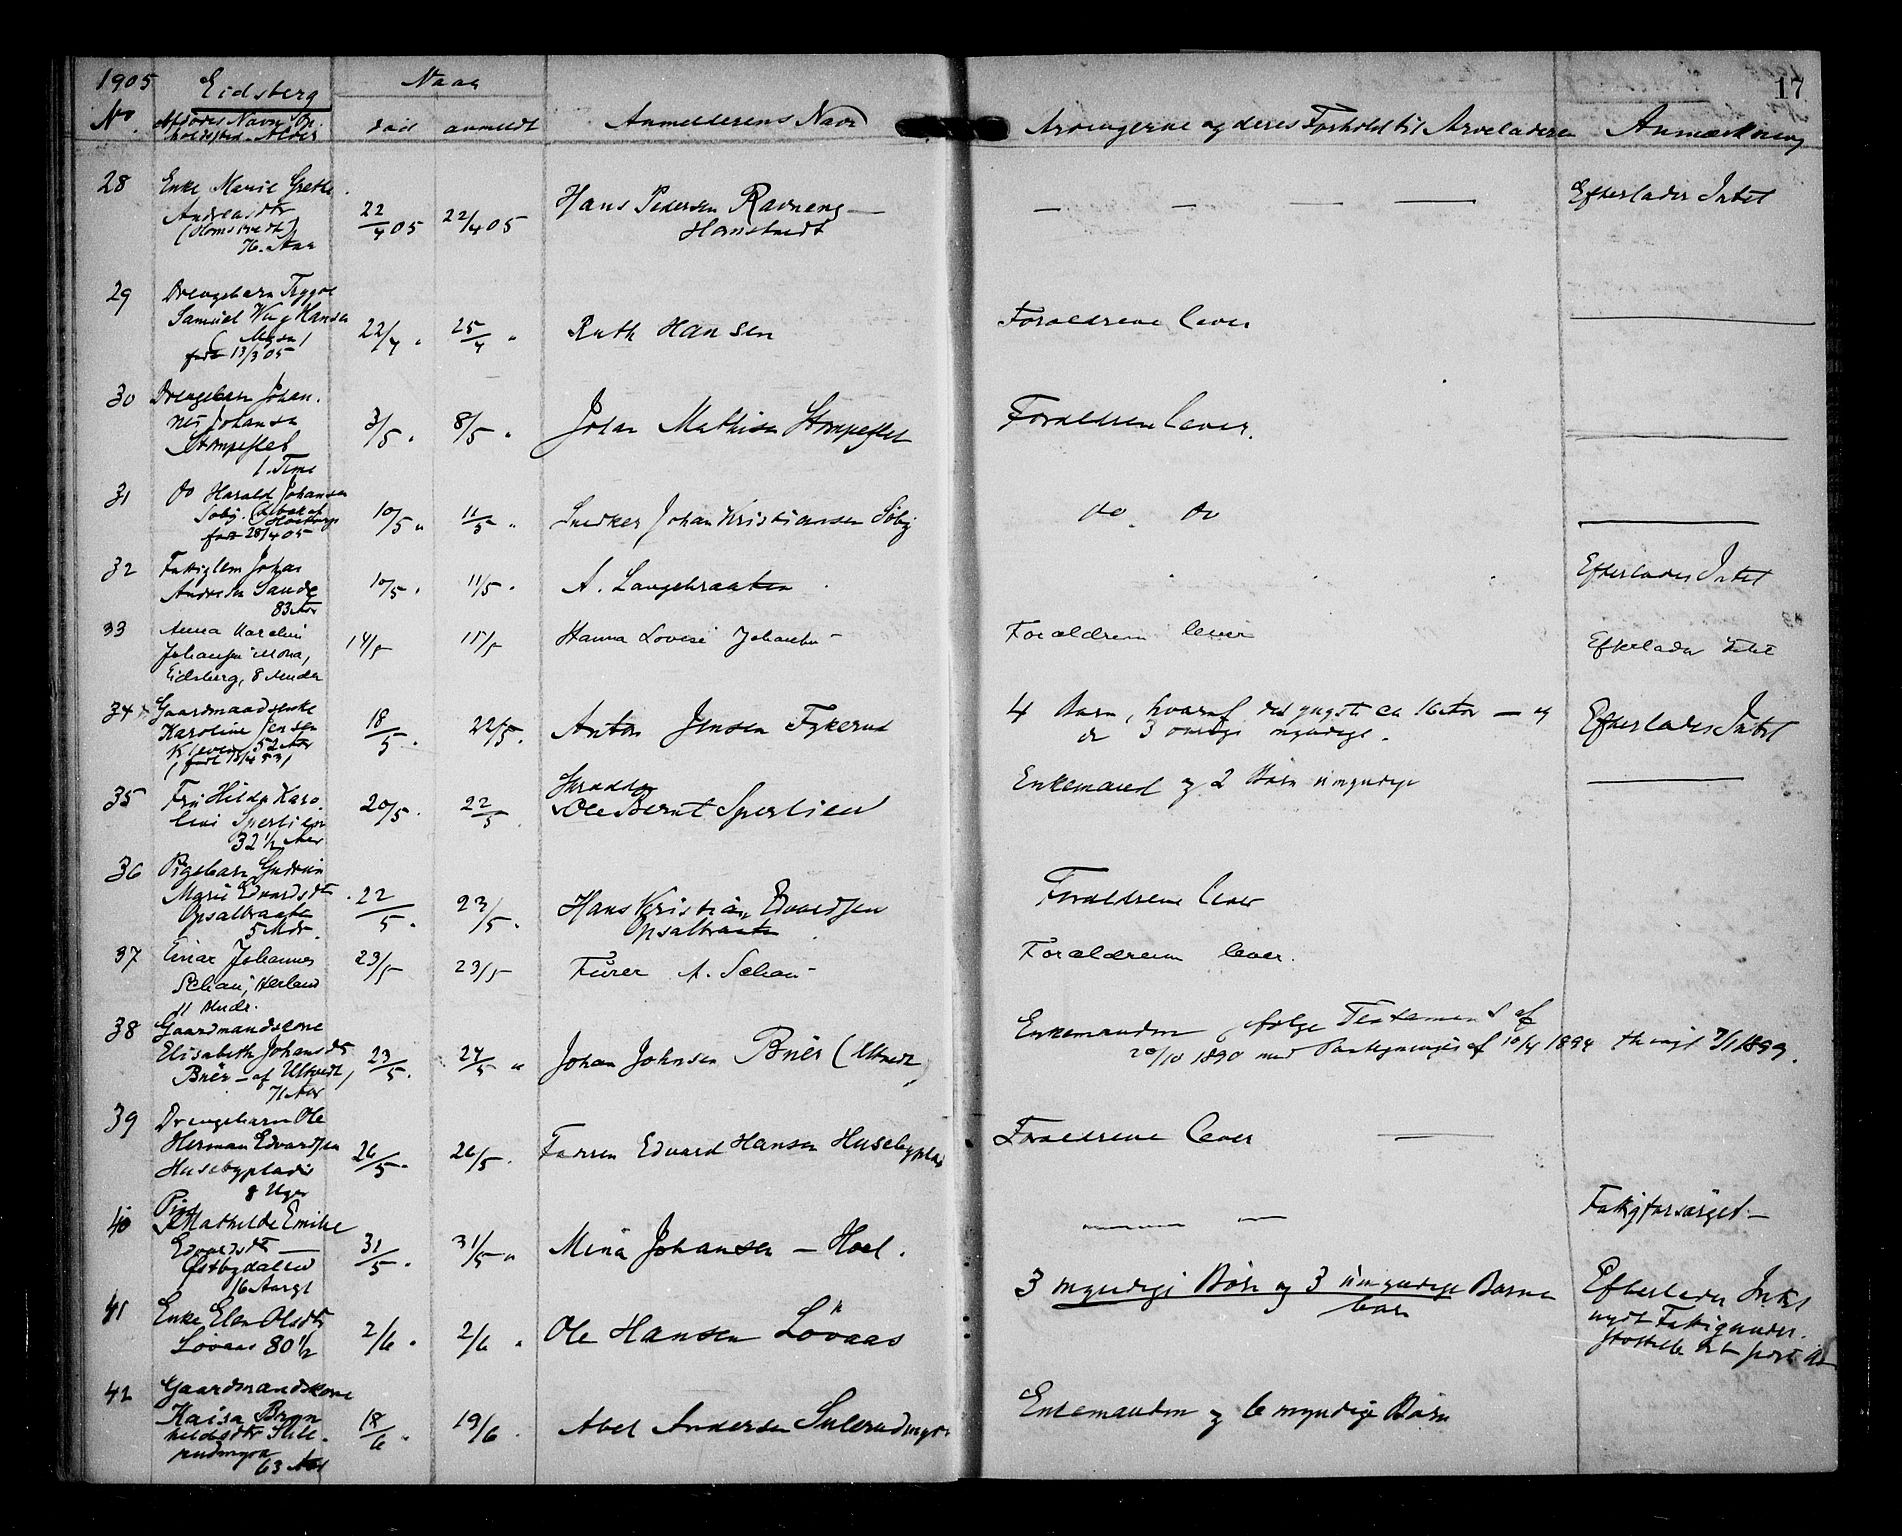 1905 Eidsberg Naar 17
No Afdødes Navn Op- død anmeldt Anmelderens Navn Arvingerne og deres Forhold til Arveladeren Anmærkning
holdssted - Alder
28 Enke Marie Grethe Hans Pedersen Ravneng — Efterlader Intet
Andreasdtr 22/4 05 22/4 05 Homstvedt
(Homstvedt)
76. Aar
29 Drengebarn Trygve
Samuel Hansen 22/4 " 25/4 " Ruth Hansen Forældrene lever
(Mysen)
født 13/3 05
30 Drengebarn Johan-
nes Johansen 3/5 " 8/5 " Johan Mathisen Stompeflet Forældrene lever.
Stompeflet
1. Time
31 do Harald Johansen
Søby. 10/5 " 11/5 " Snedker Johan Kristiansen Søby do do
født 28/4 05
32 Fattiglem Johan Efterlader Intet
Andersen Sande 10/5 " 11/5 " A. Langebraaten
83 Aar
33 Anna Karelin 14/5 15/5 Hanna Lovise Johansen Forældrene lever Efterlader Intet
Johansen Mona,
Eidsberg, 8 Mndr
34 Gaardmandsenke 18/5 " 22/5 " Anton Jensen Fykerud 4 Børn, hvoraf det yngste ca 16 Aar — og Efterlader Intet
Karoline Jensen de 3 øvrige myndige.
Kleven, 52 Aar
(født 18/4 53)
35 Fru Hilda Karo- Skrædder Enkemand og 2 Børn umyndige
line Sperlien 20/5 " 22/5 Ole Bernt Sperlien
32 1/2 Aar
36 Pigebarn Gudrun
Marie Edvardsdtr 22/5 " 23/5 " Hans Kristian Edvardsen Forældrene lever
Opsalbraaten Opsalbraaten
5 Mdr.
37 Einar Johannes 23/5 23/5 Furer A. Schau Forældrene lever.
Schau, Herland
11 Mndr.
38 Gaardmandskone Enkemanden, følge Testament af
Elisabeth Johansdtr 23/5 " 24/5 " Johan Johnsen Buer (Utvedt) 20/10 1890 med Paategninger af 10/4 1894 thingl 7/1 1899.
Buer - af Utvedt,
71 Aar
39 Drengebarn Ole
Herman Edvardsen 26/5 " 26/5 " Faderen Edvard Hansen Husebyplads Forældrene lever —
Husebyplads
8 Uger
40 Pige Fattigforsørget —
Mathilde Emilie 31/5 " 31/5 " Mina Johansen — Hoel.
Edvardsdtr —
Østbydalen
16 Aar gl
41 Enke Elen Olsdtr 2/6 " 2/6 " Ole Hansen Løvaas 3 myndige Børn og 3 umyndige Børne Efterlader Intet
Løvaas 80 1/2 børn nydt Fattigunder-
støttelse
42 Gaardmandskone
Kaisa Bryn- 18/6 " 19/6 " Abel Andersen Sulerudmyra Enkemanden og 6 myndige Børn
hildsdtr Sule-
rudmyra
63 Aar